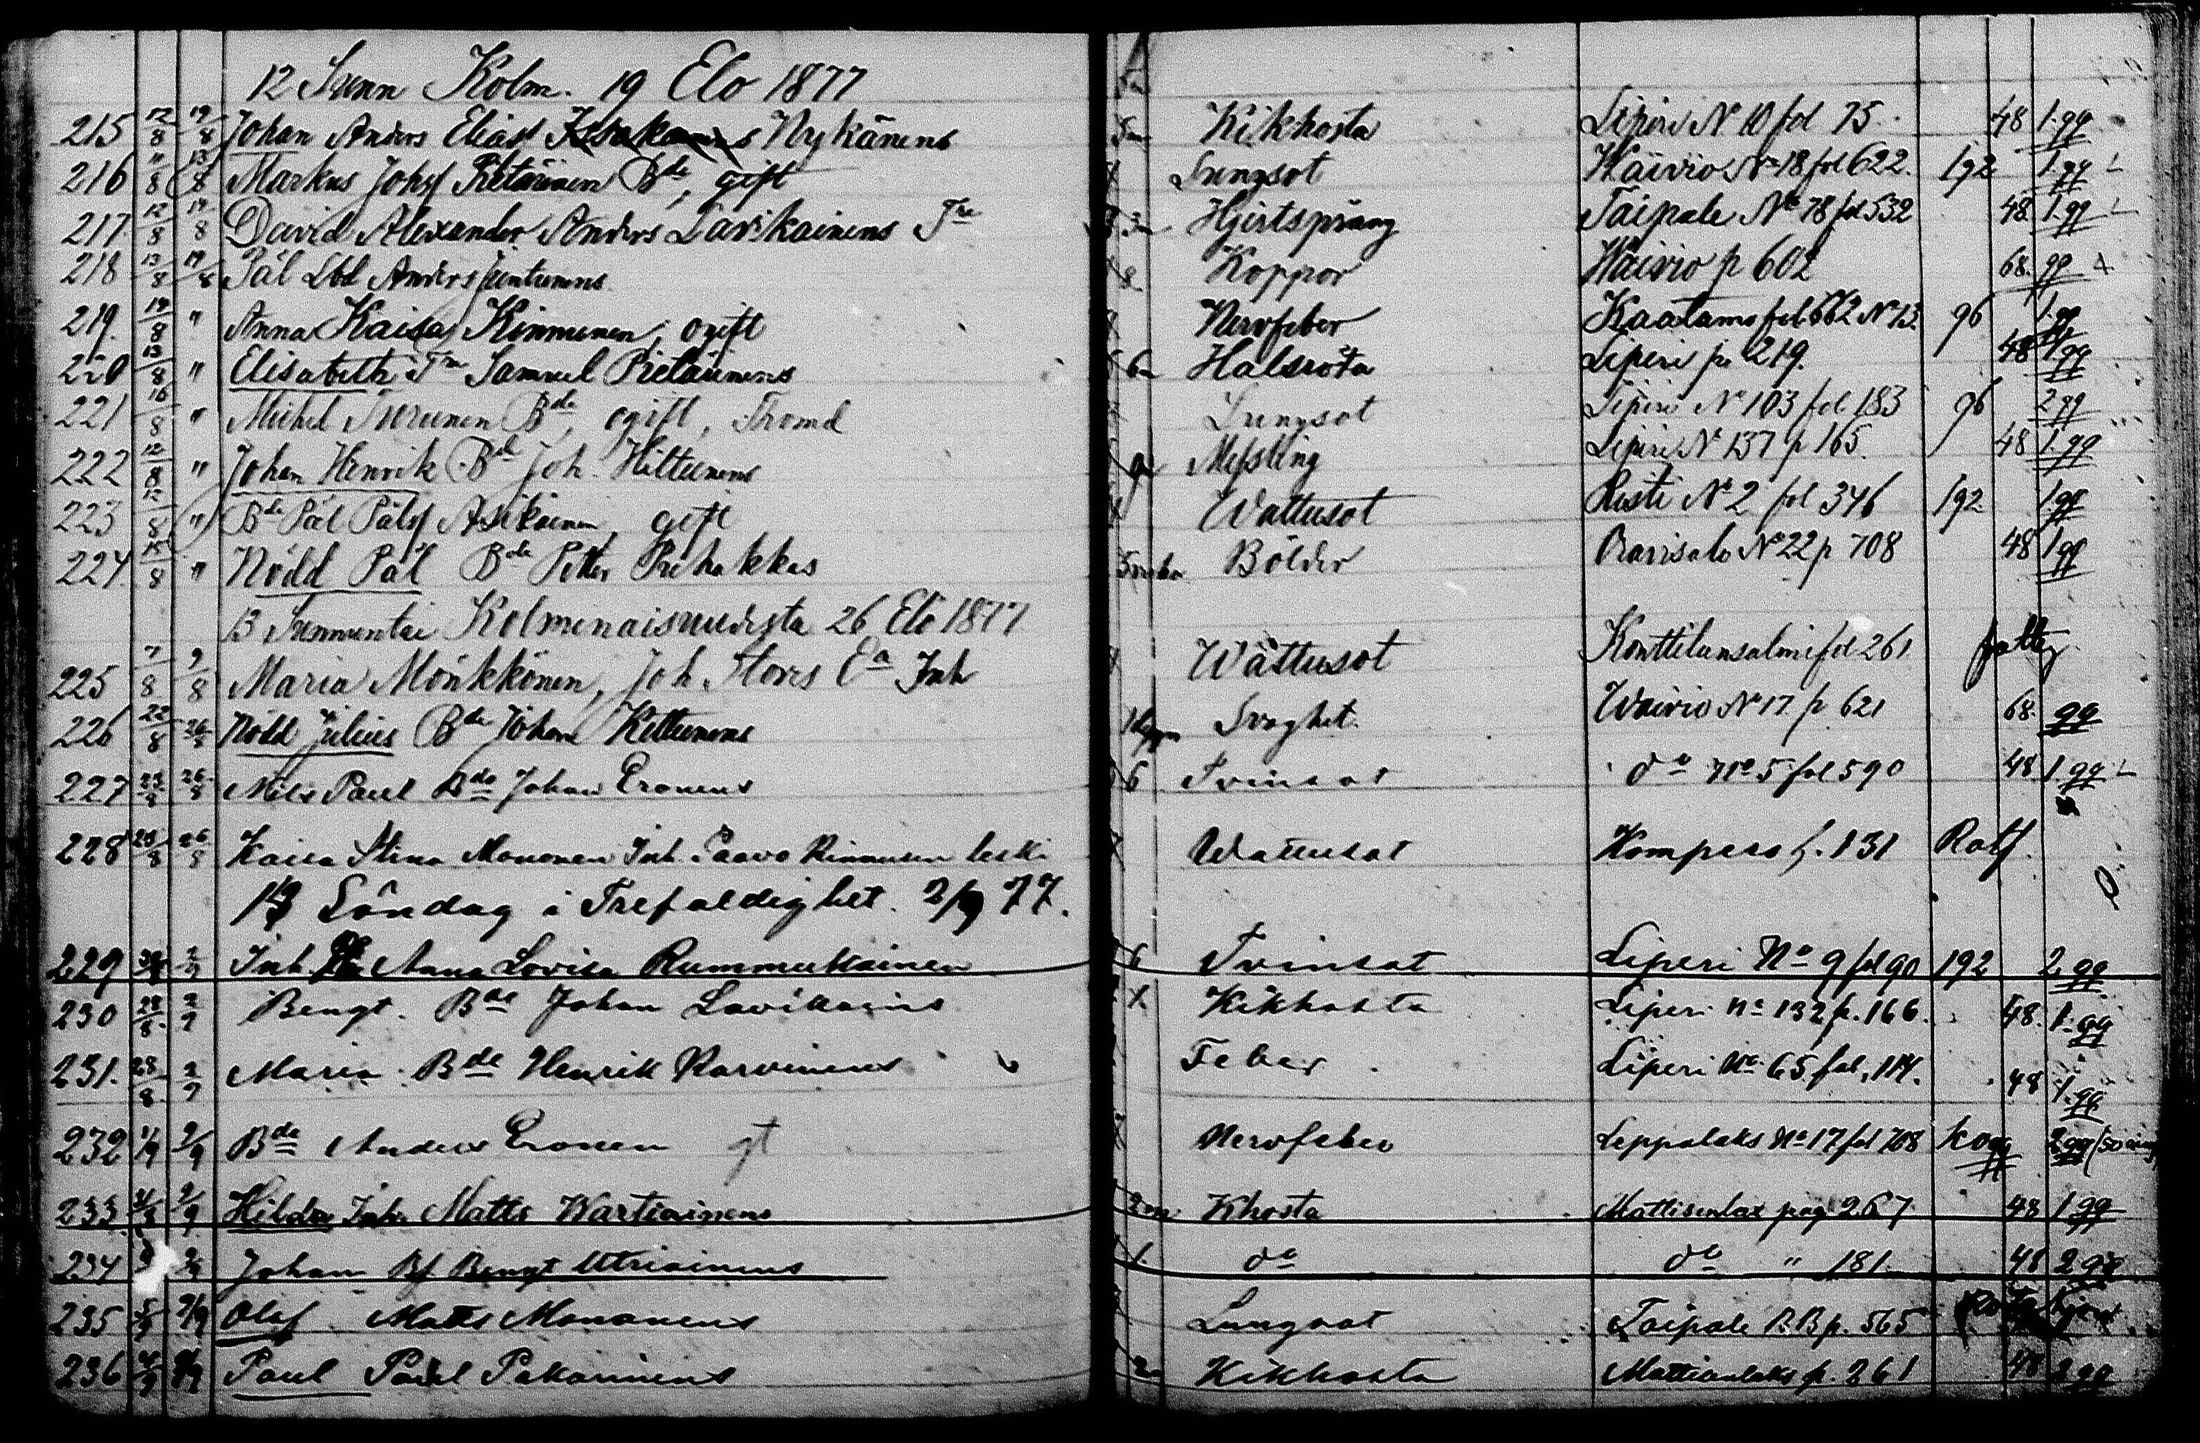 12 Sunn Kolm. 19 Elo 1877
215 12/8 19/8 Johan Anders Eliass Nykänens 5m Kikhosta Liperi No 10 fol 75. 48 1.gg
216 "/8 13/8 Markus Johss Pietarinen Bde, gift Lungsot Waivio No 18 fol 622. 192 1.gg
217 12/8 19/8 David Alexander Anders Lavikainens 3m Hjertsprång Taipale No 78 fol 532 48 1.gg
218 13/8 19/8 Pål Lbd Anders Juntunens 8 Koppor Waivio p 602 68. gg
219. 19/8 " Anna Kaisa Kinnunen, ogift Nervfeber Kaatamo fol 662 No 13 96 1.gg
220 13/8 " Elisabeth Samuel Pietarinens 6m Halsröta Liperi p. 219. 48 1gg
221 16/8 " Michel Turunen Bde, ogift, Lungsot Liperi No 103 fol 183 96 2gg
222 12/8 " Johan Henrik Bd Joh. Hiltunens 9 Messling Liperi No 137 p 165. 48 1.gg
223 12/8 " Bde Pål Pålss Asikainen, gift Wattusot Risti No 2 fol 346 192 1gg
224. 15/8 " Nödd Pål Bde Petter Puhakkas Bölder Oravisalo No 22 p 708 48 1gg
13 Sunnuntai Kolminaisuudesta 26 Elo 1877
225 7/8 9/8 Maria Mönkkönen, Joh. Ea Inh Wattusot Konttilansalmi fol 261 fattig.
226 22/8 26/8 Nödd Julius Bde Johan Kettunens Svaghet. Waivio No 17 p 621 68. gg
227 23/8 26/8 Nils Paul Bde Johan Eronens 6 Tvinsot do No 5 fol 590 48 1.gg
228 23/8 26/8 Kaisa Stina Mononen Inh. Paavo Kinnunen leski Wattusot Kompero f. 131
13 Söndag i Trefaldighet. 2/9 77.
229 2/9 Inh Anna Lovisa Rummukainen 6 Tvinsot Liperi No 9 fol 90 192 2 gg
230 28/8 2/9 Bengt. Bde Johan Lavikainens x Kikhosta Liperi No 132 p. 166. 48. 1.gg
231. 28/8. 2/9 Maria. Bde Henrik Karvinens Feber Liperi No 65 fol. 114. 48 1.gg
232 1/9 2/9 Bde Anders Eronen gt Nervfeber Leppälaks No 17 fol 708 2gg
233 31/8 2/9 Hilda Inh. Matts Wartiainens 2m Khosta Mattisenlax pag 267 48 1gg
234 2/9 Johan Bengt Utriainens 1. do do " 181. 48 2gg
235 5/9 9/9 Olof Matts Mononens Lungsot Taipale R.B p. 565
236 9/9 Paul Paul Pakarinens 2m Kikhosta Mattisenlaks p. 261 48 2gg